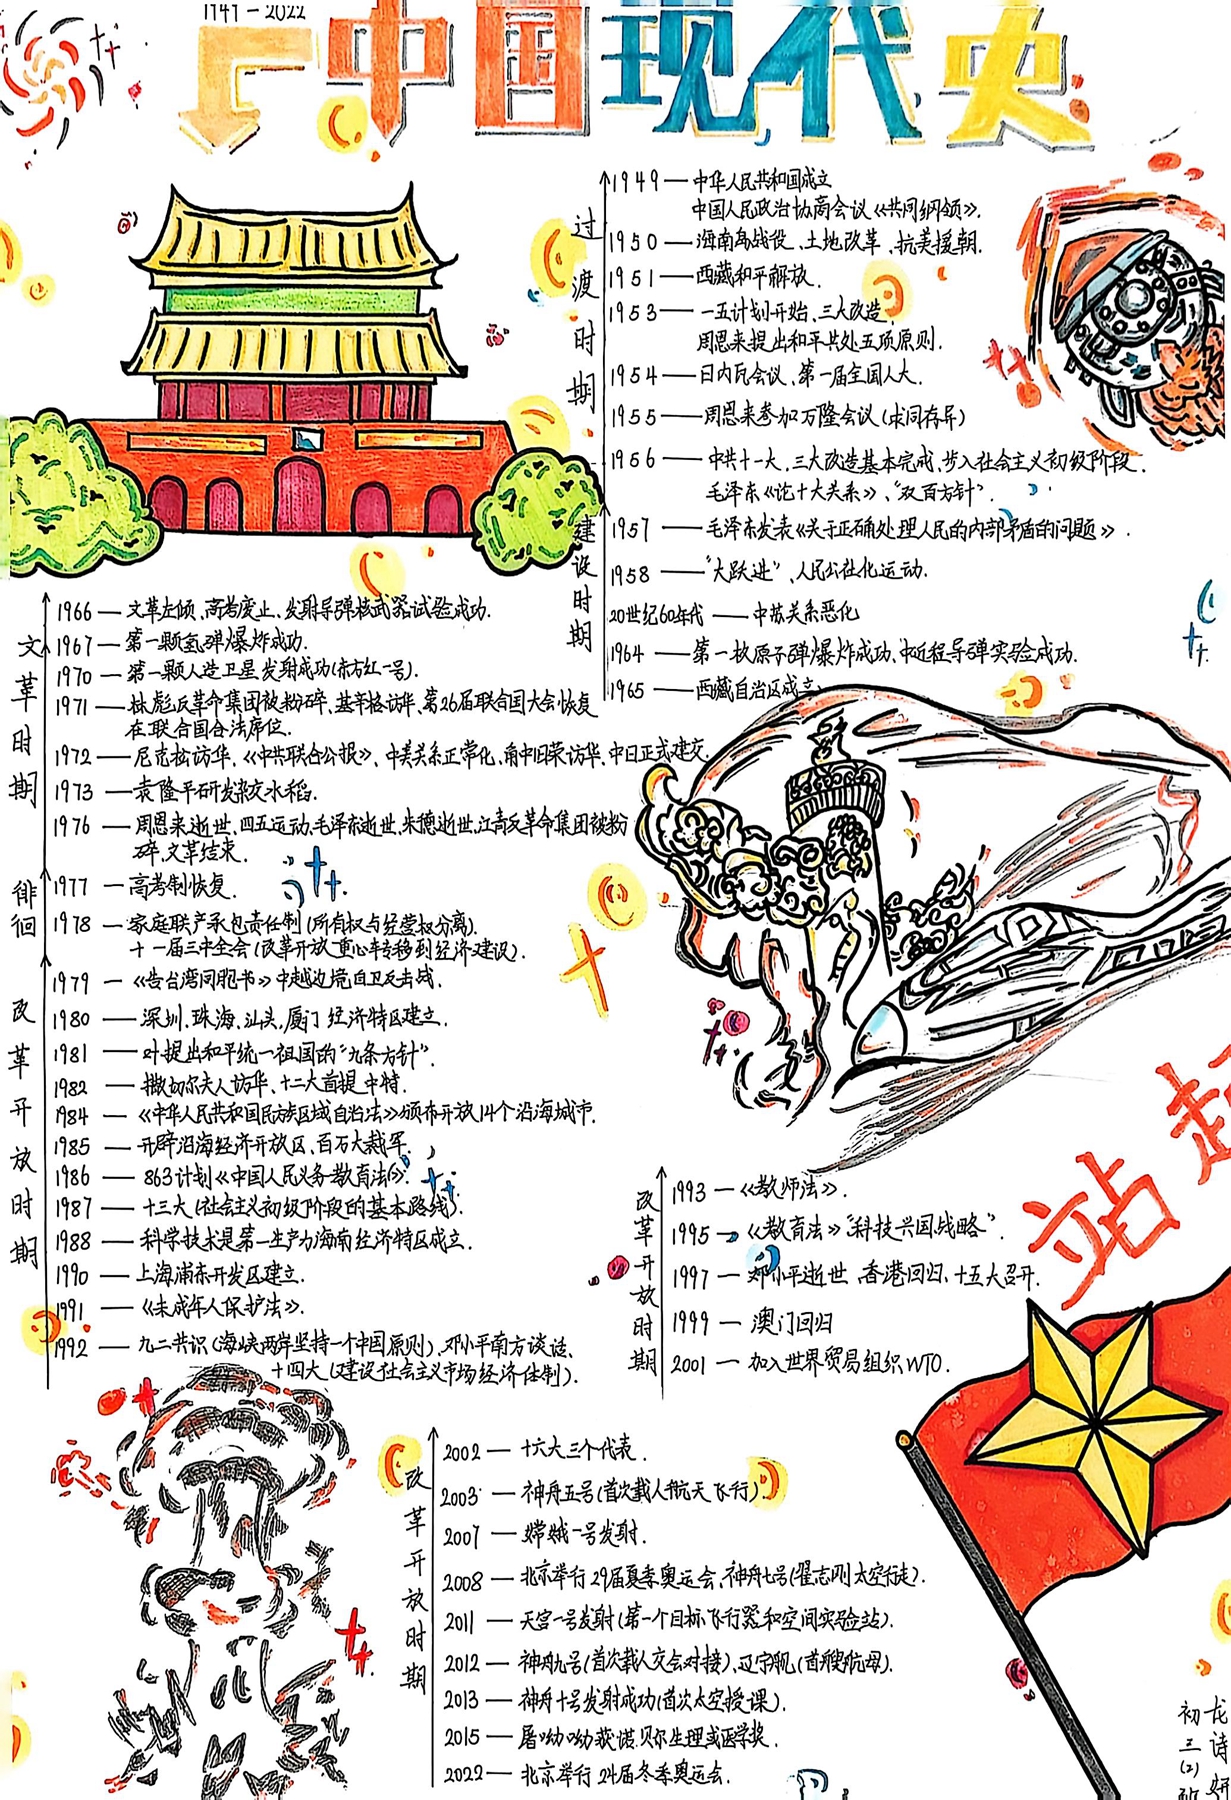 1949-2022
中国现代史
过渡时期
1949—中华人民共和国成立
中国人民政治协商会议《共同纲领》.
1950—海南岛战役、土地改革、抗美援朝.
1951—西藏和平解放.
1953—一五计划开始、三大改造,
周恩来提出和平共处五项原则.
1954—日内瓦会议、第一届全国人大.
1955—周恩来参加万隆会议(求同存异)
1956—中共十一大、三大改造基本完成,步入社会主义初级阶段.
毛泽东《论十大关系》、"双百方针".
建设时期
1957—毛泽东发表《关于正确处理人民的内部矛盾的问题》.
1958—"大跃进"、人民公社化运动.
20世纪60年代—中苏关系恶化
1964—第一枚原子弹爆炸成功、中近程导弹实验成功.
1965—西藏自治区成立
文革时期
1966—文革左倾、高考废止、发射导弹核武器试验成功.
1967—第一颗氢弹爆炸成功.
1970—第一颗人造卫星发射成功(东方红一号).
1971—林彪反革命集团被粉碎、基辛格访华、第26届联合国大会恢复
在联合国合法席位.
1972—尼克松访华,《中共联合公报》、中美关系正常化,角中旧荣访华,中日正式建交.
1973—袁隆平研发杂交水稻.
1976—周恩来逝世、四五运动,毛泽东逝世,朱德逝世,江青反革命集团被粉
碎,文革结束.
徘徊
1977—高考制恢复.
1978—家庭联产承包责任制(所有权与经营权分离).
十一届三中全会(改革开放,重心转移到经济建设).
改革开放时期
1979—《告台湾同胞书》中越边境自卫反击战.
1980—深圳、珠海、汕头、厦门经济特区建立.
1981—叶提出和平统一祖国的"九条方针".
1982—撒切尔夫人访华、十二大首提中特.
1984—《中华人民共和国民族区域自治法》颁布开放14个沿海城市.
1985—开辟沿海经济开放区、百万大裁军.
1986—863计划《中国人民义务教育法》.
1987—十三大(社会主义初级阶段的基本路线).
1988—科学技术是第一生产力海南经济特区成立.
1990—上海浦东开发区建立.
1991—《未成年人保护法》.
1992—九二共识(海峡两岸坚持一个中国原则)、邓小平南方谈话、
十四大(建设社会主义市场经济体制).
站起
改革开放时期
1993—《教师法》.
1995—《教育法》"科技兴国战略".
1997—邓小平逝世、香港回归、十五大召开.
1999—澳门回归
2001—加入世界贸易组织WTO.
改革开放时期
2002—十六大三个代表.
2003—神舟五号(首次载人航天飞行)
2007—嫦娥一号发射.
2008—北京举行29届夏季奥运会、神舟七号(翟志刚太空行走).
2011—天宫一号发射(第一个目标飞行器和空间实验站).
2012—神舟九号(首次载人交会对接),辽宁舰(首艘航母).
2013—神舟十号发射成功(首次太空授课).
2015—屠呦呦获诺贝尔生理或医学奖.
2022—北京举行24届冬季奥运会.
初三(2)班
龙诗妍